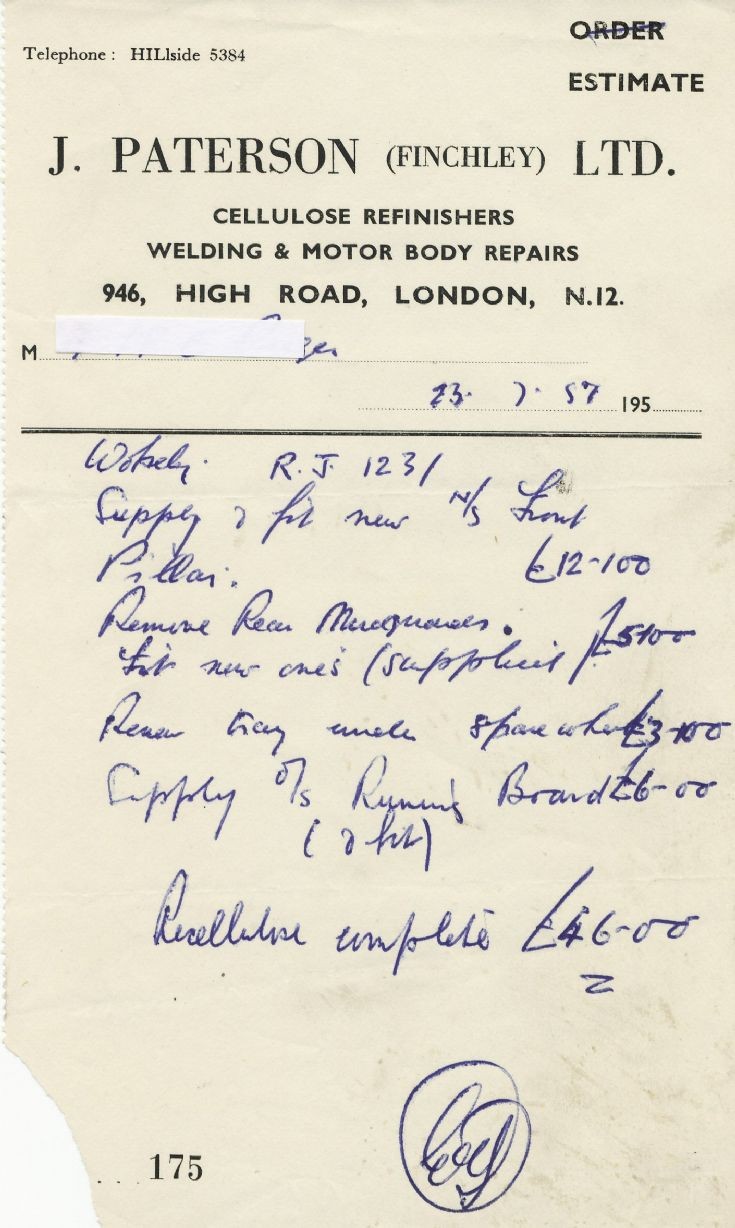 ORDER
Telephone : HILlside 5384
ESTIMATE
J. PATERSON (FINCHLEY) LTD.
CELLULOSE REFINISHERS
WELDING & MOTOR BODY REPAIRS
946, HIGH ROAD, LONDON, N.12.
M
23. 7. 57 195
Wolsely. R.J. 1231
Supply & fit new N/S Front
Pillar. £12-100
Remove Rear Mudguards. £5100
Fit new one's (supplied)
Renew tray under spare wheel £3-100
Supply O/S Running Board £6-00
(& fit)
Recellulose complete £46-00
175